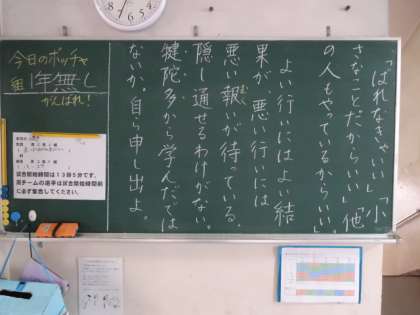 「ばれなきゃいい」「小
さなことだからいい」「他
の人もやってるからいい」
よい行いにはよい結
果が、悪い行いには
悪い報いが待っている。
むく
隠し通せるわけがない。
犍陀多から学んだでは
ないか。自ら申し出よ。
今日のボッチャ
1年無し
組
がんばれ!
試合開始時間は13時5分です。
両チームの選手は試合開始時間前
に必ず集合してください。